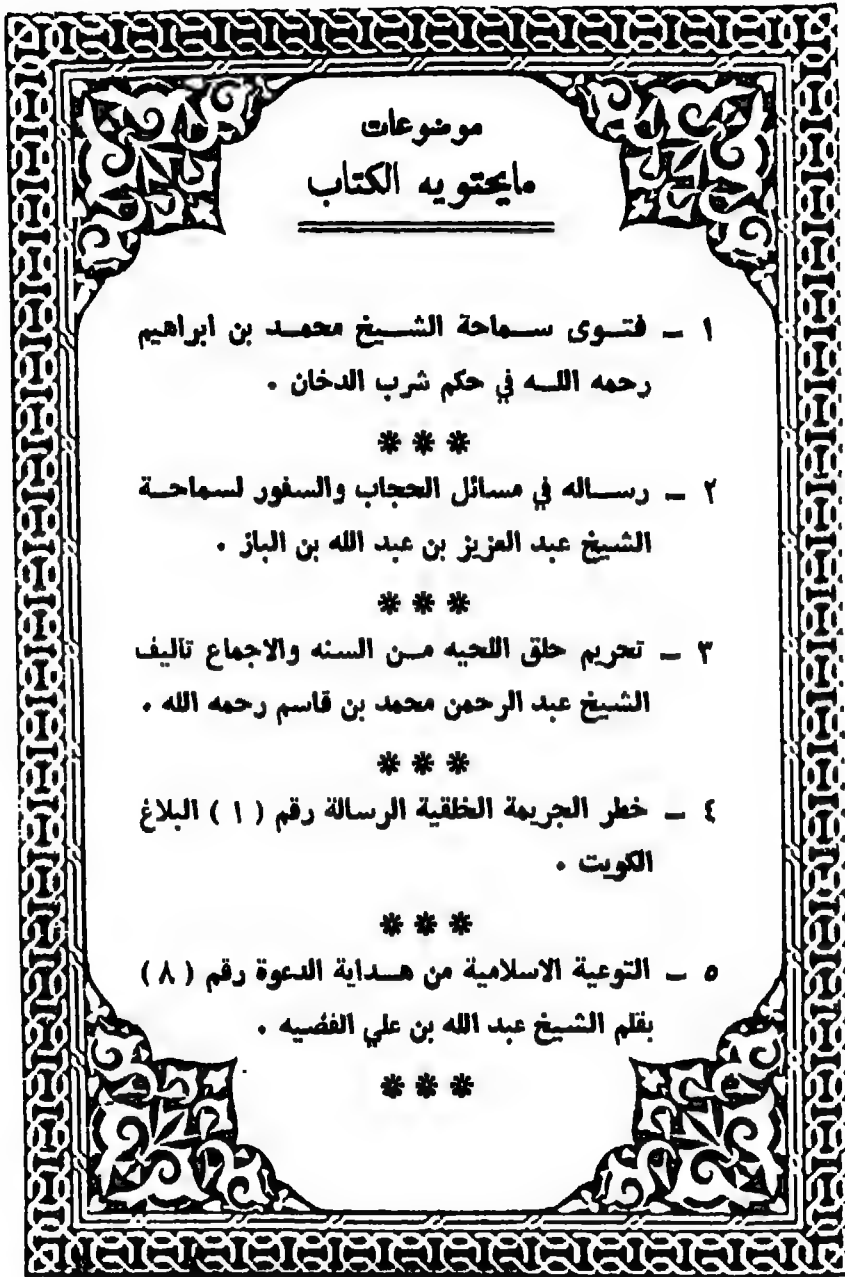 موضوعات
مايحتويه الكتاب
١ – فتوى سماحة الشيخ محمد بن ابراهيم
رحمه الله في حكم شرب الدخان .
* * *
٢ – رساله في مسائل الحجاب والسفور لسماحة
الشيخ عبد العزيز بن عبد الله بن الباز .
* * *
٣ – تحريم حلق اللحيه من السنه والاجماع تاليف
الشيخ عبد الرحمن محمد بن قاسم رحمه الله .
* * *
٤ – خطر الجريمة الخلقية الرسالة رقم ( ١ ) البلاغ
الكويت .
* * *
٥ – التوعية الاسلامية من هداية الدعوة رقم ( ٨ )
بقلم الشيخ عبد الله بن علي الغضيه .
* * *